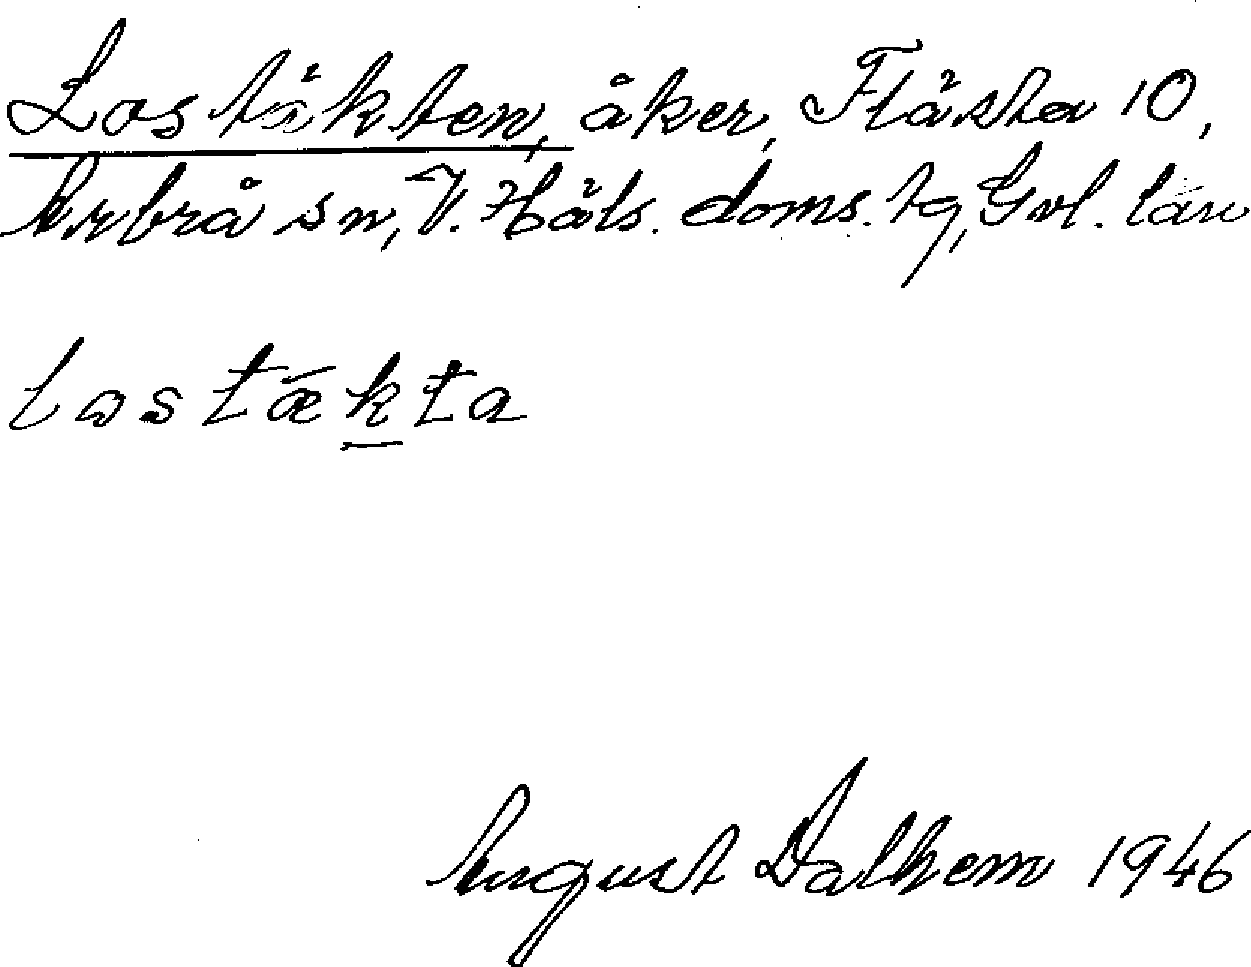 Lostäkten, åker, Flästa 10,
Arbrå sn, V. Häls. doms. tg, Gvl. län
lostǽkta
August Dalhem 1946